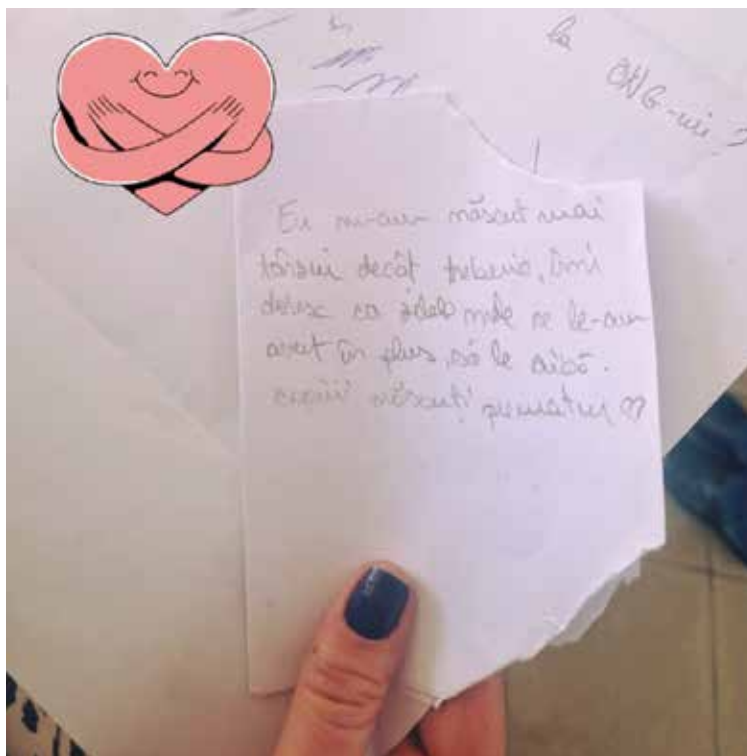 la
ONG-uri?
Eu m-am născut mai
târziu decât trebuia, îmi
doresc ca zilele mele ce le-am
avut în plus, să le aibă.
copiii născuți prematur